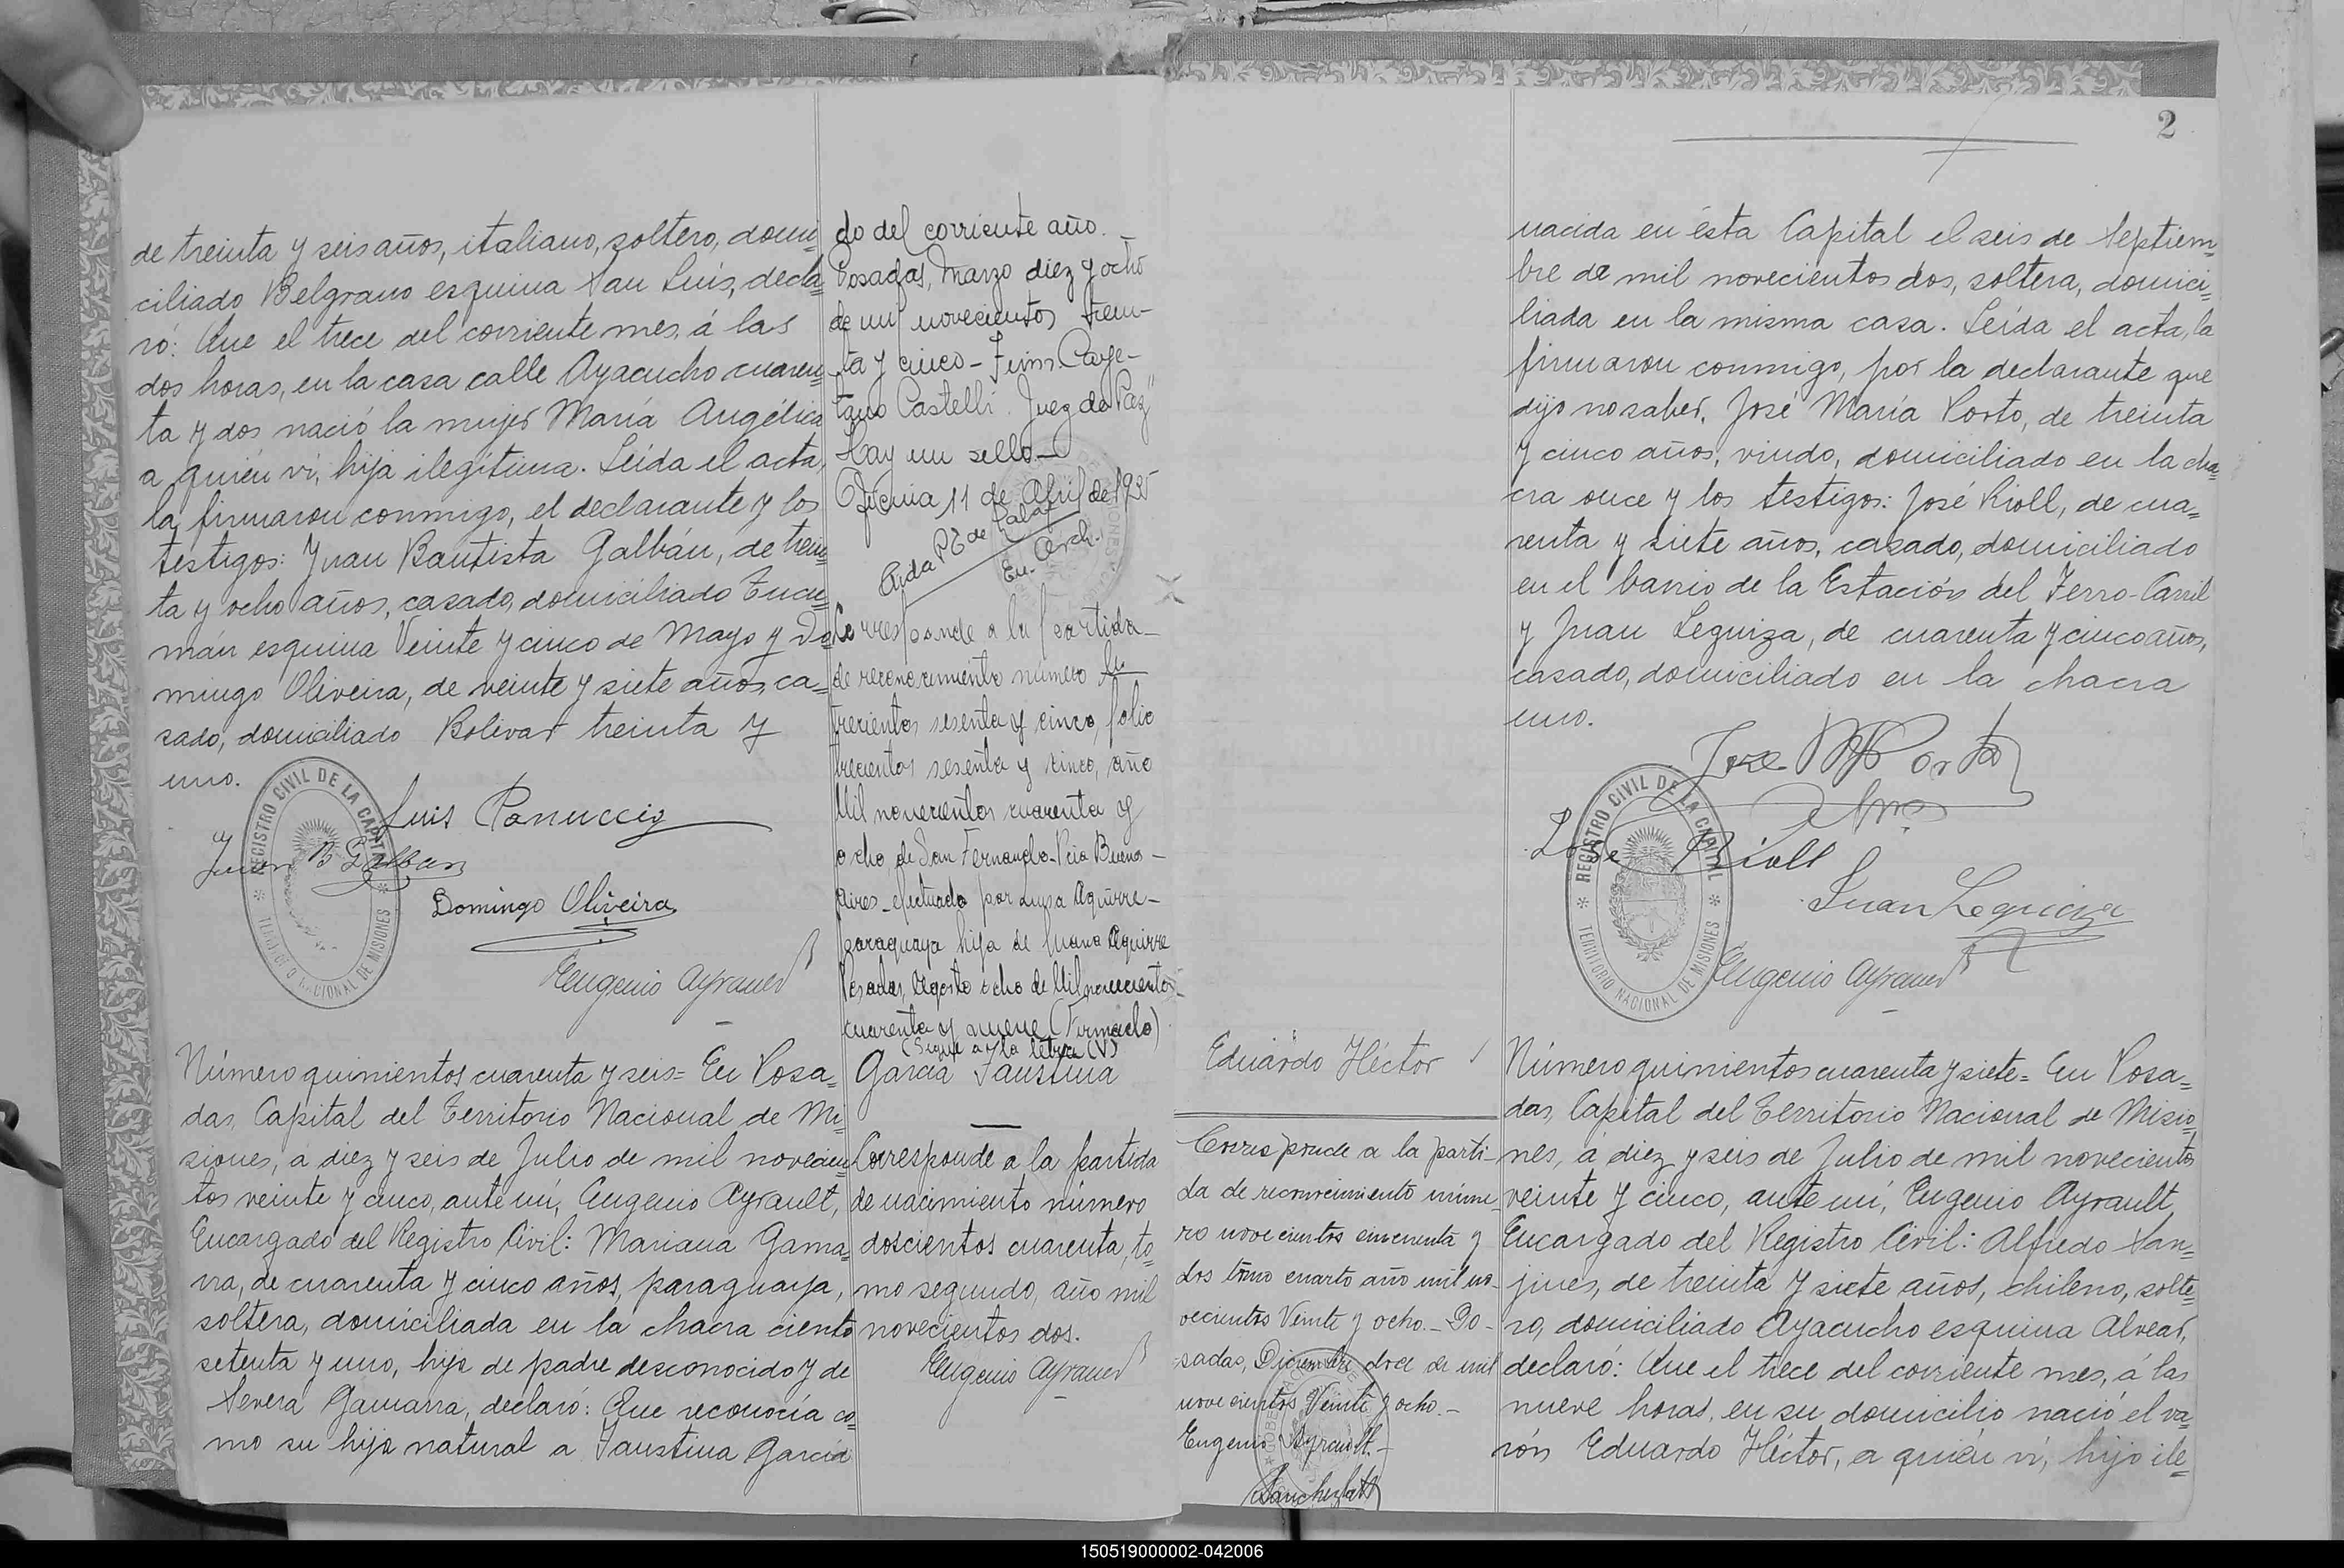 de treinta y seis años, italiano, soltero, domi=
ciliado Belgrano esquina San Luis, decla=
ró: Que el trece del corriente mes, á las
dos horas, en la casa calle Ayacucho cuaren=
ta y dos nació la mujer María Angélica
a quién ví, hija ilegítima. Leída el acta,
la firmaron conmigo, el declarante y los
testigos: Juan Bautista Galbán, de trein=
ta y ocho años, casado, domiciliado Tucu=
mán esquina Veinte y cinco de Mayo y Do=
mingo Oliveira, de veinte y siete años, ca=
sado, domiciliado Bolívar treinta y
uno.
REGISTRO CIVIL DE LA CAPITAL
TERRITORIO NACIONAL DE MISIONES
Luis Panuccio
Juan B Galban
Domingo Oliveira
Eugenio Ayrault
Número quinientos cuarenta y seis= En Posa=
das, Capital del Territorio Nacional de Mi=
siones, a diez y seis de Julio de mil novecien=
tos veinte y cinco, ante mí, Eugenio Ayrault,
Encargado del Registro Civil: Mariana Gama=
rra, de cuarenta y cinco años, paraguaya,
soltera, domiciliada en la chacra ciento
setenta y uno, hija de padre desconocido y de
Severa Gamarra, declaró: Que reconocía co=
mo su hija natural a Faustina García
do del corriente año._
Posadas, Marzo diez y ocho
de mil novecientos trein-
ta y cinco - Firm. Caye-
tano Castelli. Juez de Paz"
Hay un sello_
Oficina 11 de Abril de 1935
Aida P. de
En. Arch.
Corresponde a la partida_
de reconocimiento número
trecientos sesenta y cinco, folio
trecientos sesenta y cinco, año
Mil novecientos cuarenta y
ocho, de San Fernando-Pcia Buenos-
Aires_efectuado por Luisa Aguirre-
paraguaya hija de Juana Aguirre
Posadas, Agosto ocho de Mil novecientos
cuarenta y nueve (Firmado)
(Sigue a la letra (V)
García Faustina
Corresponde a la partida
de nacimiento número
doscientos cuarenta, to=
mo segundo, año mil
novecientos dos.
Eugenio Ayrault
2
Eduardo Héctor
Corresponde a la parti-
da de reconocimiento núme-
ro novecientos cincuenta y
dos tomo cuarto año mil no-
vecientos Veinte y ocho._Po-
sadas, Diciembre doce de mil
novecientos Veinte y ocho.-
Eugenio Ayrault.-
nacida en ésta Capital el seis de Septiem=
bre de mil novecientos dos, soltera, domici=
liada en la misma casa. Leída el acta, la
firmaron conmigo, por la declarante que
dijo no saber, José María Porto, de treinta
y cinco años, viudo, domiciliado en la cha=
cra once y los testigos: José Rioll, de cua=
renta y siete años, casado, domiciliado
en el barrio de la Estación del Ferro-Carril
y Juan Leguiza, de cuarenta y cinco años,
casado, domiciliado en la chacra
uno.
Jose M Porto
Jose Rioll
REGISTRO CIVIL DE LA CAPITAL
TERRITORIO NACIONAL DE MISIONES
Juan Leguiza
Eugenio Ayrault
Número quinientos cuarenta y siete= En Posa=
das, Capital del Territorio Nacional de Misio=
nes, á diez y seis de Julio de mil novecientos
veinte y cinco, ante mí, Eugenio Ayrault,
Encargado del Registro Civil: Alfredo San=
jines, de treinta y siete años, chileno, solte=
ro, domiciliado Ayacucho esquina Alvear,
declaró: Que el trece del corriente mes, á las
nueve horas, en su domicilio nació el va=
rón Eduardo Héctor, a quién ví, hijo ile=
150519000002-042006